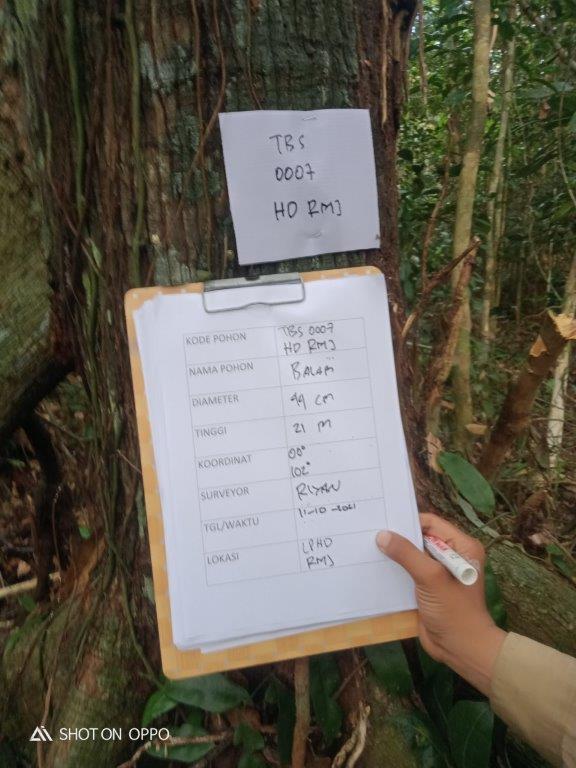 TBS
0007
HD RMJ
KODE POHON TBS 0007
HD RMJ
NAMA POHON BALAM
DIAMETER 49 CM
TINGGI 21 M
KOORDINAT 00°
102°
SURVEYOR RIYAN
TGL/WAKTU 11-10-2021
LOKASI LPHD
RMJ
SHOT ON OPPO